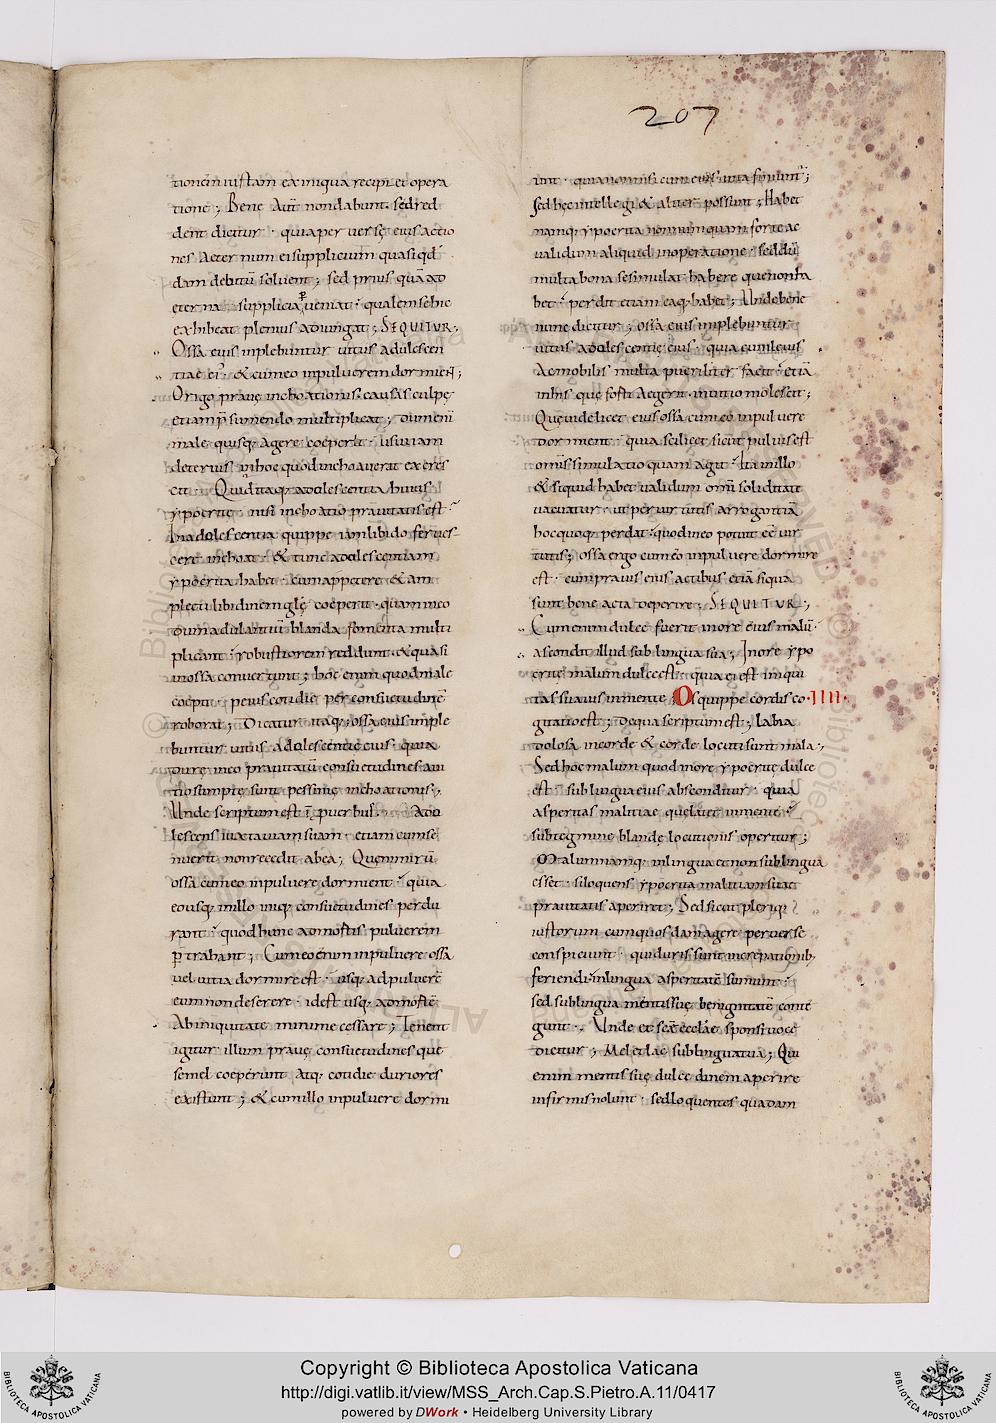 207
tionem iustam ex iniqua recipiet opera
tione ; Bene aut̄ non dabunt · sed red
dent dicitur · quia perversę eius actio
nes aeternum ei supplicium quasi qd̄
dam debitū solvent ; sed prius quā ad
eterna supplicia ꝑveniat · qualem se hic
exhibeat plenius adiungat ; SEQUITUR ;
Ossa eius implebuntur vitiis adulescen
tiae ei' ; & cū meo in pulverem dormien̄t ;
Origo pravę inchoationis causas culpę
etiam p̄sumendo multiplicat ; dum enī
male quisq; agere coeperit · usu iam
deterius in hoc quod inchoaverat excres
cit · Quid itaq; adolescentia huius
ypocritę · nisi inchoatio pravitatis est ·
In adolescentia quippe iam libido ferves
cere inchoat · & tunc adolescentiam
ypocrita habet · cum appetere & am
plecti libidinem glę coeperit · quam in eo
dum adulantiū blanda fomenta multi
plicant · robustiorem reddunt · & quasi
in ossa convertunt ; hoc enim quod male
coepit · peius cotidie per consuetudinē
roborat ; Dicatur itaq; ossa eius imple
buntur vitiis adolescentię eius · quia
durę in eo pravitatū consuetudines a vi
tio sumptę sunt pessimę inchoationis ;
Unde scriptum est ī ꝓverbiis · Ado
lescens iuxta viam suam · etiam cum se
nuerit non recedit ab ea ; Que nimirū
ossa cum eo in pulvere dormient · quia
eousq; in illo iniq; consuetudines perdu
rant · quod hunc ad mortis pulverem
p̄trahant ; Cum eo enim in pulvere ossa
vel vitia dormire est · usq; ad pulverē
eum non deserere · id est usq; ad mortē
ab iniquitate minime cessare ; Tenent
igitur illum pravę consuetudines que
semel coeperunt atq; cotidie duriores
existunt ; & cum illo in pulvere dormi
unt · quia non nisi cum eius vita finiunt' ;
Sed hęc intellegi & aliter possunt ; Habet
namq; ypocrita nonnumquam forte ac
validum aliquid in operatione · sed dū
multa bona se simulat habere que non ha
bet · perdit etiam ea que habet ; Unde bene
nunc dicitur ; ossa eius implebuntur
vitiis adolescentię eius · quia cum levis
ac mobilis multa pueriliter facit · etiā
in his quę forti aegerit · in vitio molescit ;
Que videlicet eius ossa cum eo in pulvere
dormient · quia scilicet sicut pulvis est
omīs simulatio quam agit · ita in illo
& siquid habet validum omī soliditate
vacuatur · ut per virtutis arrogantiā
hoc quoq; perdat · quod in eo potuit eē vir
tutis ; ossa ergo cum eo in pulvere dormire
est · cum pravis eius actibus etiā siqua
sunt bene acta deperire ; SEQUITUR ;
Cum enim dulce fuerit in ore eius malū ·
abscondit illud sub lingua sua ; In ore ypo
critę malum dulce est · quia ei est iniqui
tas suavis in mente ; Os quippe cordis co · IIII ·
gitatio est ; de qua scriptum est ; labia
dolosa in corde & corde locuti sunt mala ;
Sed hoc malum quod in ore ypocritę dulce
est · sub lingua eius absconditur · quia
asperitas malitiae que latet in mente ·
sub tegmine blandę locutionis operitur ;
Malum namq; in lingua et non sub lingua
esset · si loquens ypocrita malitiam suae
pravitatis aperiret ; Sed sicut pleriq;
iustorum cum quos dam agere perverse
conspiciunt · qui duris sunt increpationib;
feriendi · in lingua asperitatē sumunt ·
sed sub lingua mentis suę benignitatē conte
gunt · Unde et scae eccłae sponsi voce
dicitur ; Mel et lac sub lingua tua ; Qui
enim mentis suę dulcedinem aperire
infirmis nolunt · sed loquentes quadam
Copyright © Biblioteca Apostolica Vaticana
http://digi.vatlib.it/view/MSS_Arch.Cap.S.Pietro.A.11/0417
powered by DWork • Heidelberg University Library
BIBLIOTECA APOSTOLICA VATICANA
BIBLIOTECA APOSTOLICA VATICANA